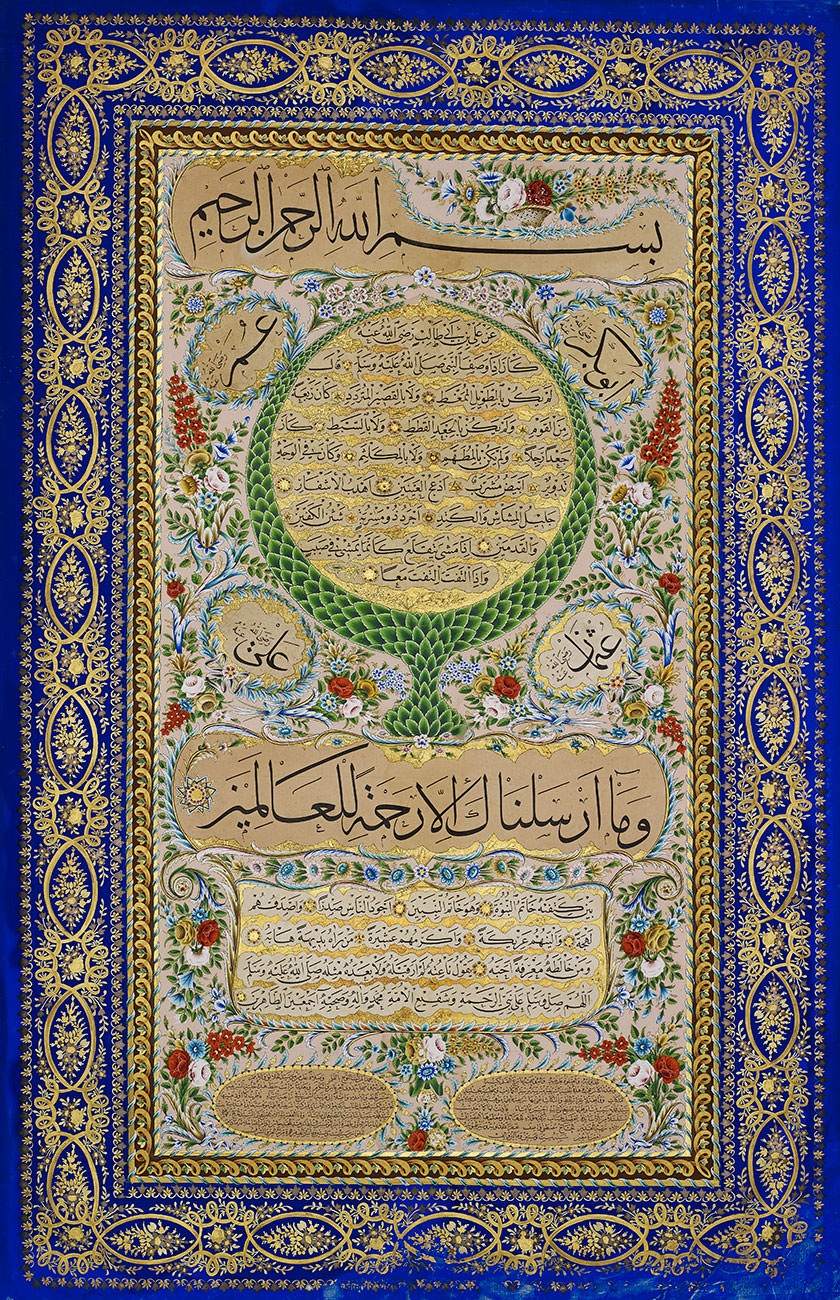 بسم الله الرحمن الرحيم
ابو بكر رضي الله عنه
عمر رضي الله عنه
عن علي بن ابي طالب رضي الله عنه
كان اذا وصف النبي صلى الله عليه وسلم قال
لم يكن بالطويل الممغط ولا بالقصير المتردد كان ربعة
من القوم ولم يكن بالجعد القطط ولا بالسبط كان
جعدا رجلا ولم يكن بالمطهم ولا بالمكلثم وكان في الوجه
تدوير ابيض مشرب ادعج العينين اهدب الاشفار
جليل المشاش والكتد اجرد ذو مسربة شثن الكفين
والقدمين اذا مشى يتقلع كانما يمشي في صبب
واذا التفت التفت معا
عثمان رضي الله عنه
علي رضي الله عنه
وما ارسلناك الا رحمة للعالمين
بين كتفيه خاتم النبوة وهو خاتم النبيين اجود الناس صدرا واصدقهم
لهجة والينهم عريكة واكرمهم عشيرة من راه بديهة هابه
ومن خالطه معرفة احبه يقول ناعته لم ار قبله ولا بعده مثله صلى الله عليه وسلم
اللهم صل وسلم على نبي الرحمة وشفيع الامة محمد واله وصحبه اجمعين الطاهرين